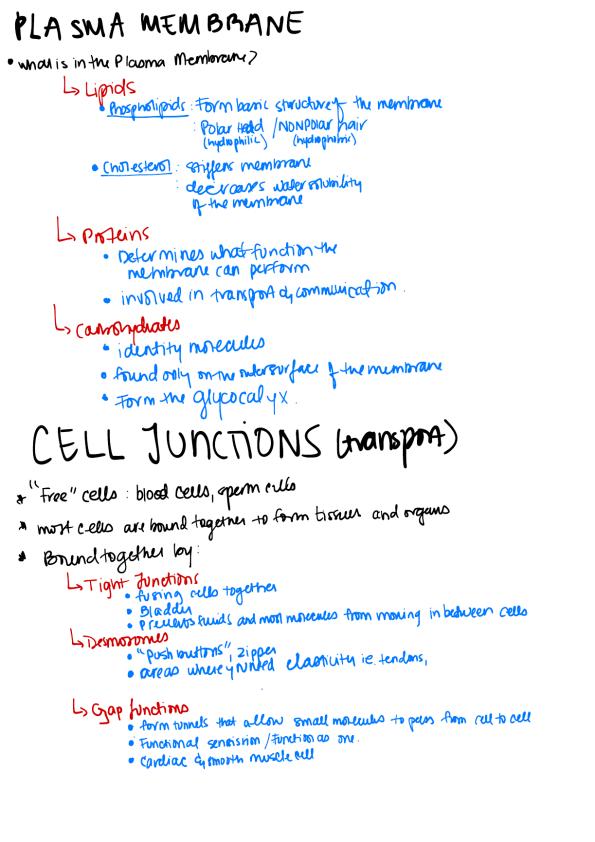 PLASMA MEMBRANE
• what is in the Plasma Membrane?
↳ Lipids
• Phospholipids : Form basic structure of the membrane
: Polar Head / NONPolar hair
(hydrophilic) (hydrophobic)
• Cholesterol : stiffens membrane
: decreases water solubility
of the membrane
↳ Proteins
• Determines what function the
membrane can perform
• involved in transport & communication.
↳ Carbohydrates
• identity molecules
• found only on the outer surface of the membrane
• Form the glycocalyx.
CELL JUNCTIONS (transport)
* "Free" cells : blood cells, sperm cells
* most cells are bound together to form tissues and organs
* Bound together by:
↳ Tight Junctions
• fusing cells together
• Bladder
• Prevents fluids and most molecules from moving in between cells
↳ Desmosomes
• "push buttons", zipper
• areas where need elasticity ie. tendons,
↳ Gap junctions
• form tunnels that allow small molecules to pass from cell to cell
• Functional / Function as one.
• Cardiac & smooth muscle cell